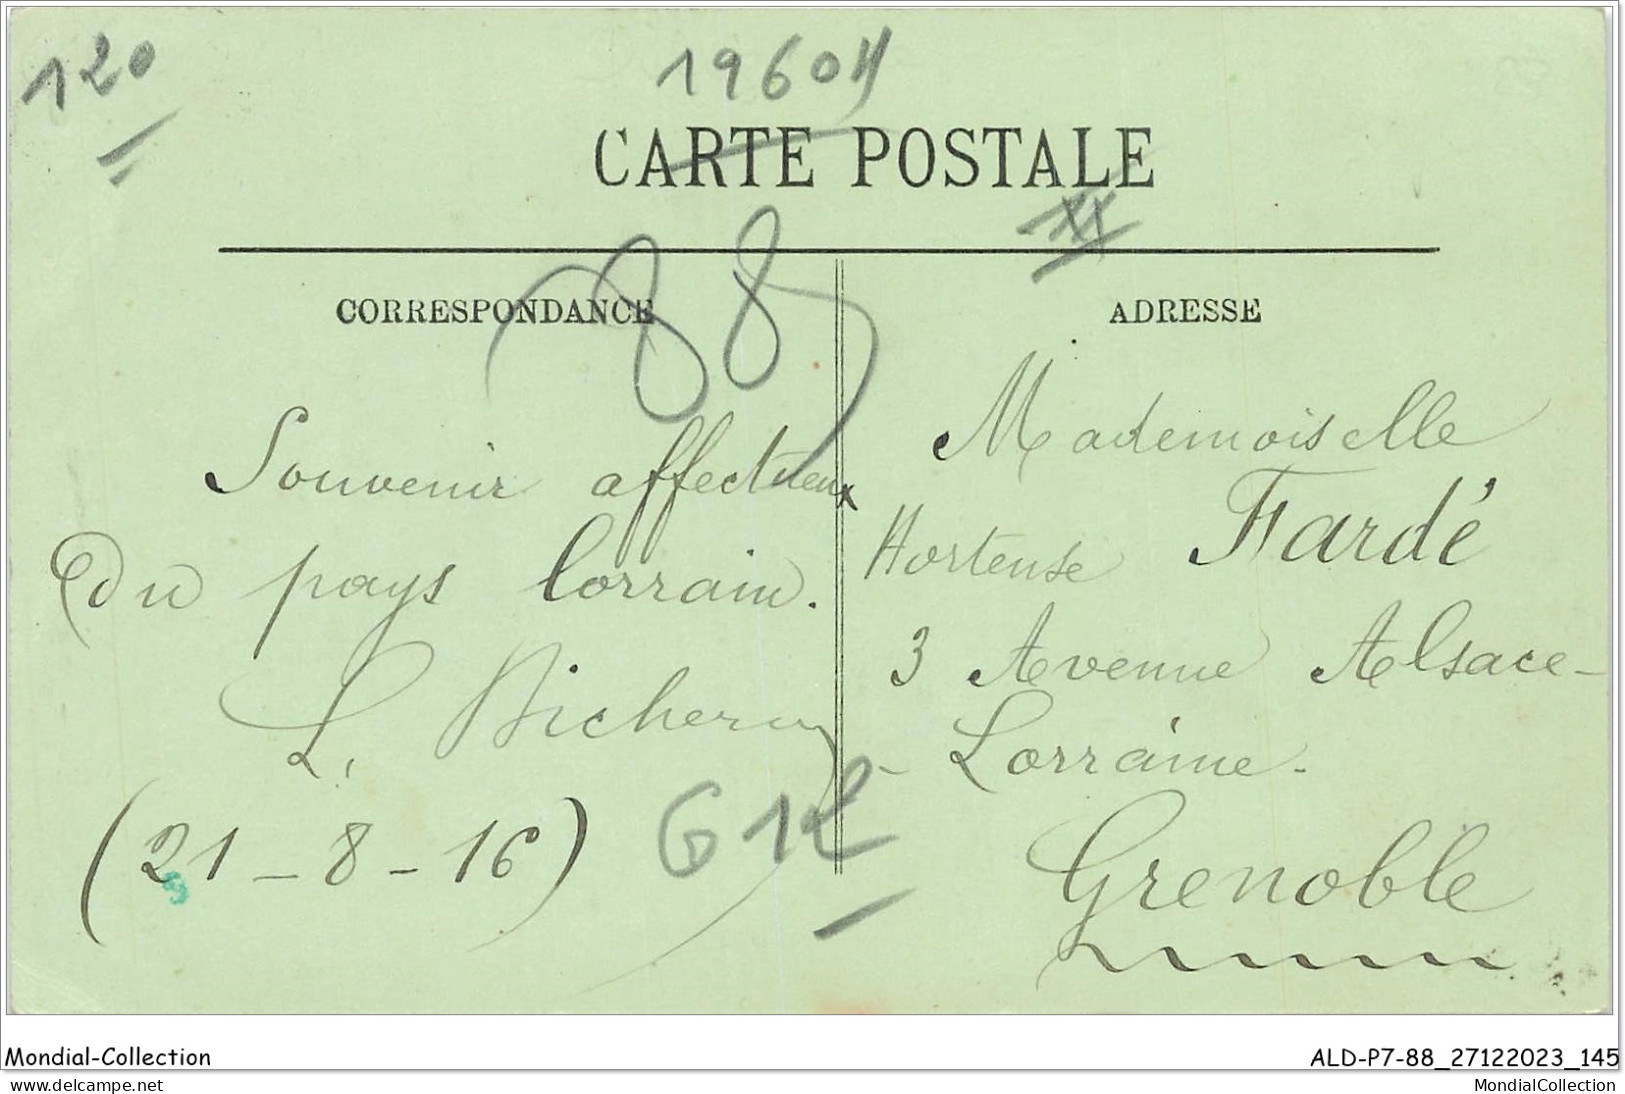 120
CARTE POSTALE
88
CORRESPONDANCE
Souvenir affectueux
du pays lorrain.
L.
(21-8-16)
G12
ADRESSE
Mademoiselle
Hortense Fardé
3 Avenue Alsace-
- Lorraine-
Grenoble
Mondial-Collection
ALD-P7-88_27122023_145
www.delcampe.net
MondialCollection